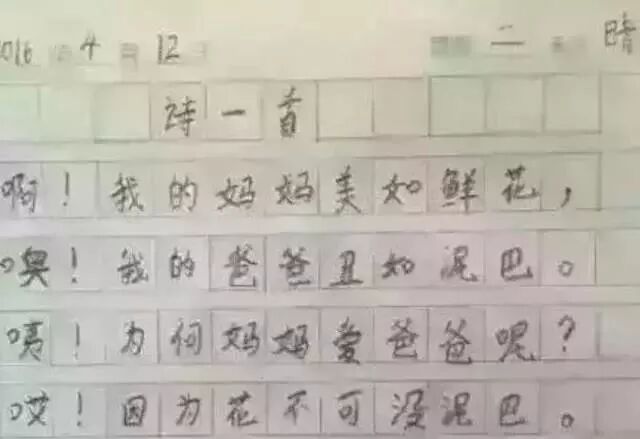 2016年4月12日 星期二 晴
诗一首
啊！我的妈妈美如鲜花，
噢！我的爸爸丑如泥巴。
咦！为何妈妈爱爸爸呢？
哎！因为花不可没泥巴。